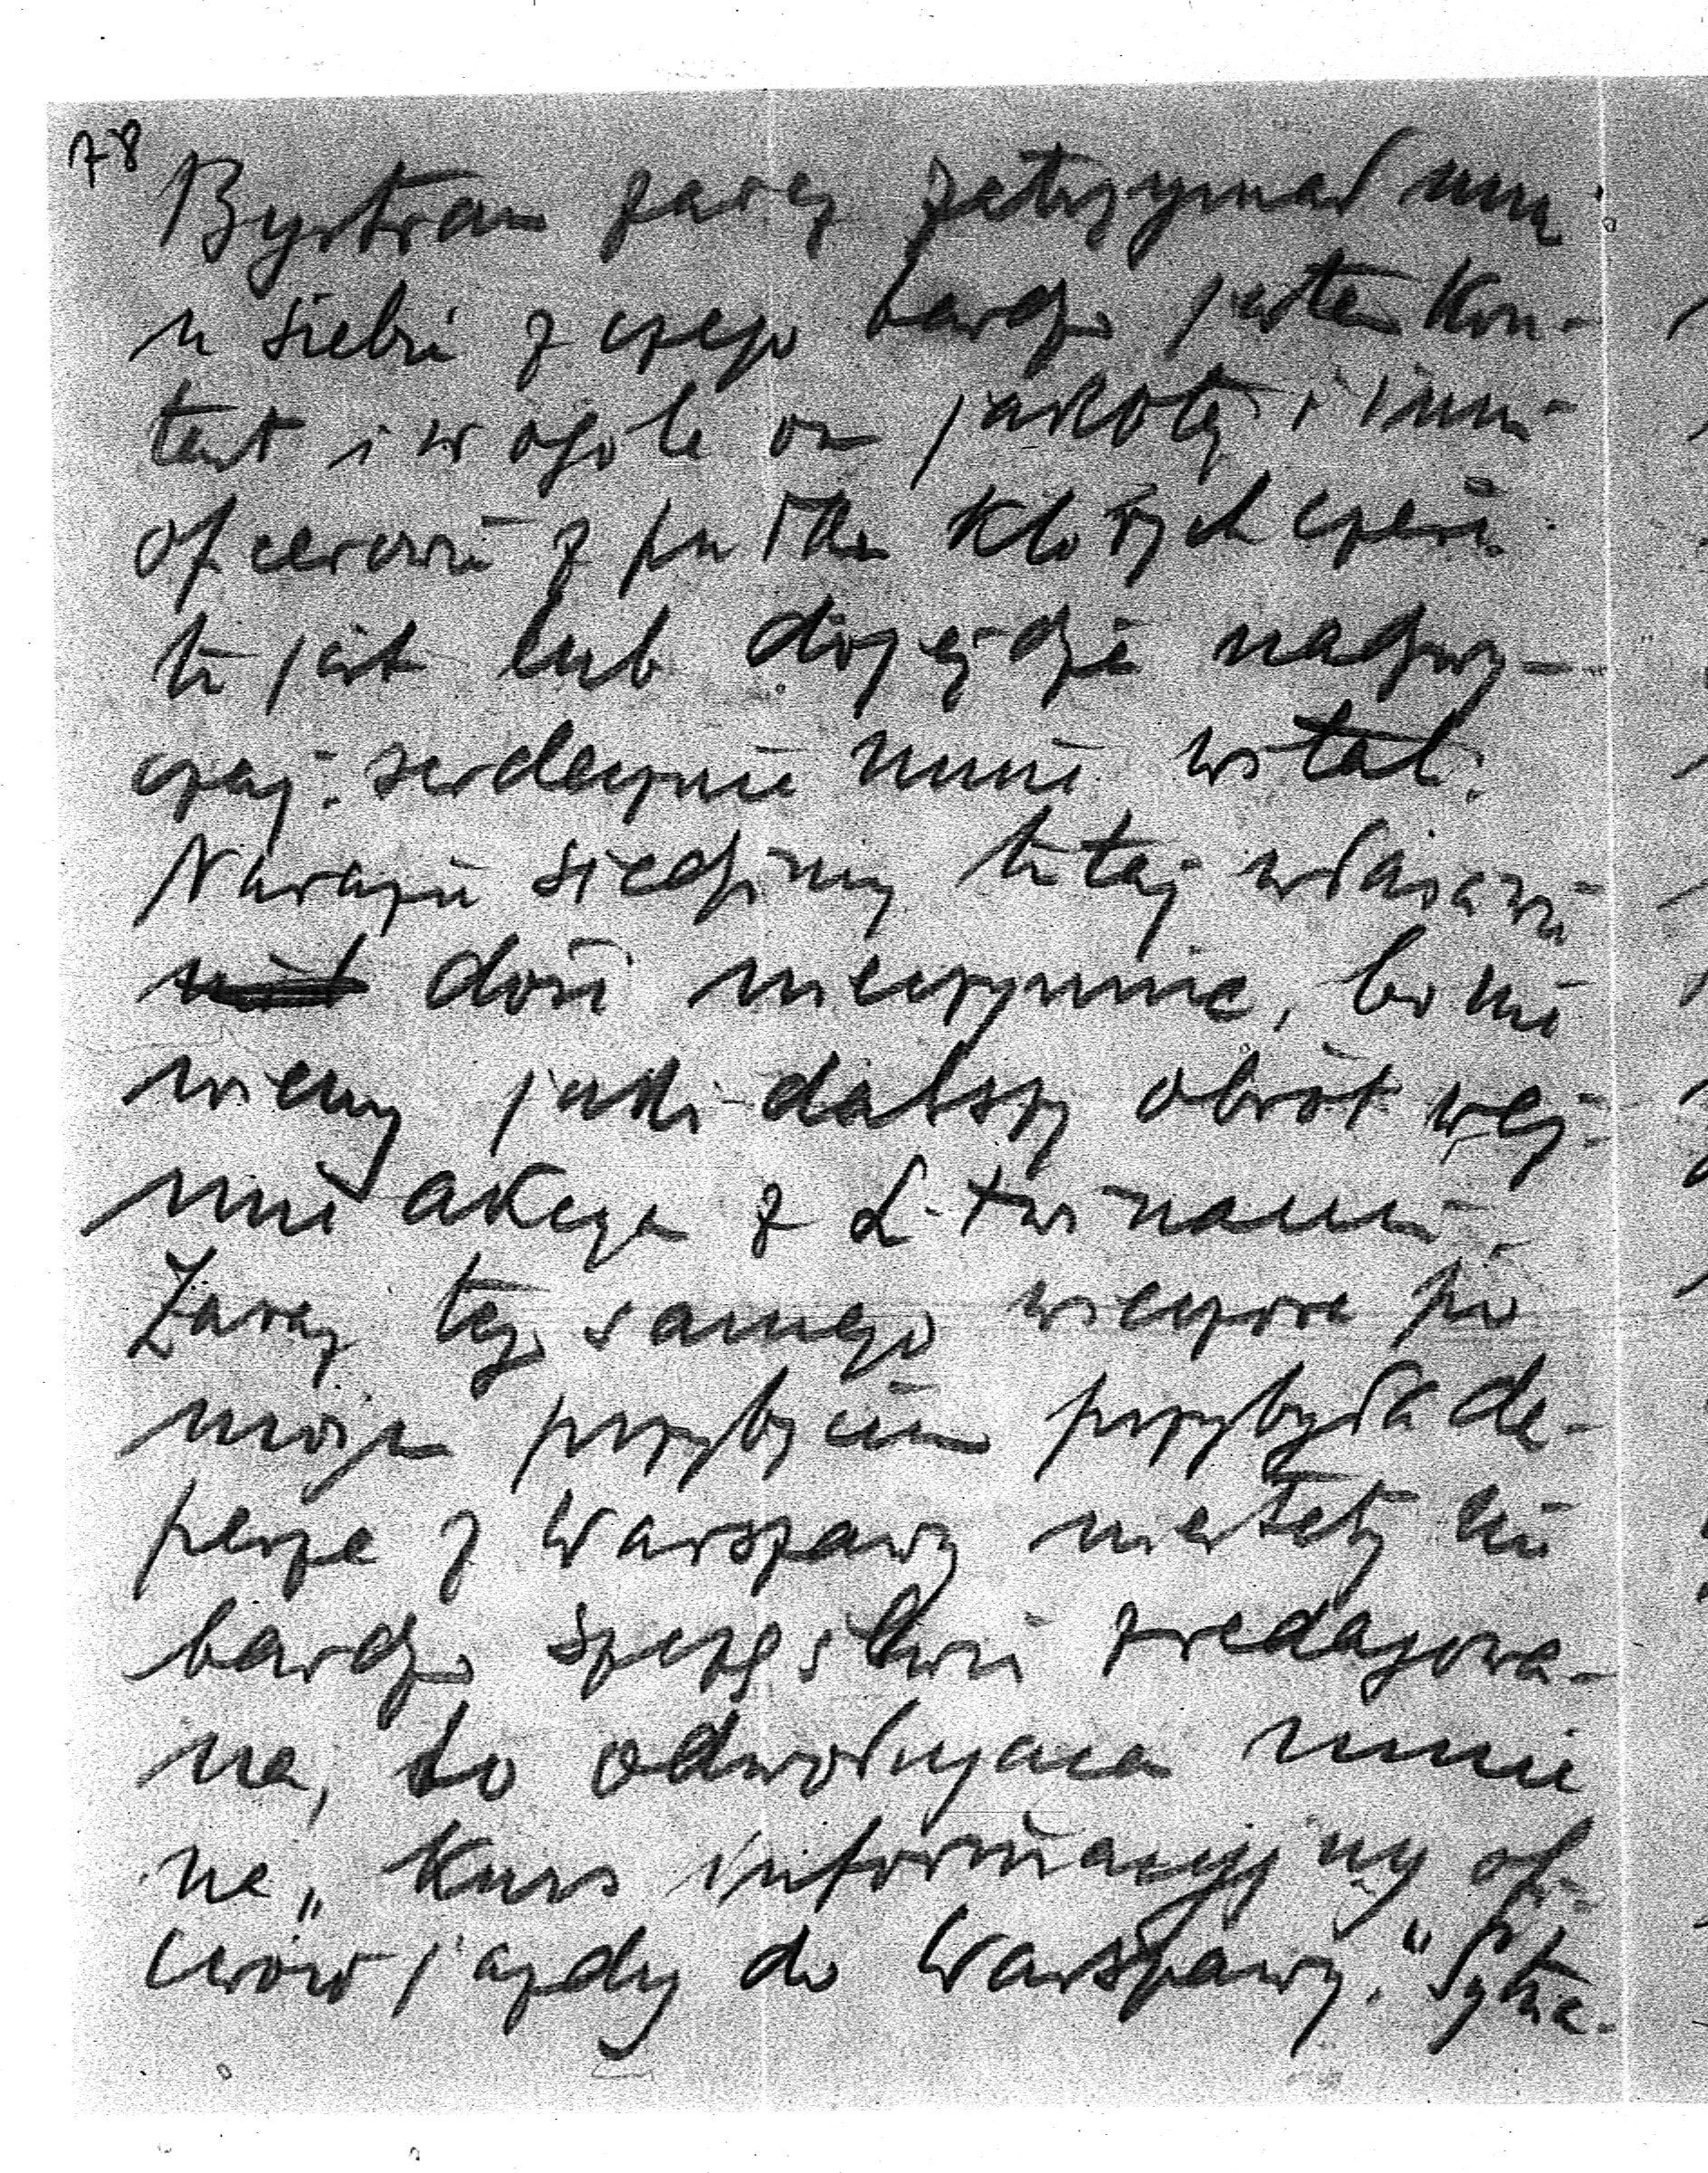 78
Bystram zaraz zatrzymał mnie
u siebie z czego bardzo jestem kon-
tent i w ogóle on jakoteż i inni
oficerowie z pułku których część
tu jest lub dojeżdża nadzwy-
czaj serdecznie mnie witali.
Narazie siedzimy tutaj właściwie
dość nieczynnie, bo nie
wiemy jaki dalszy obrót weź-
mie akcya z Litwinami.
Zaraz tego samego wieczora po
moim przybyciu przybyła de-
pesza z Warszawy niestety nie
bardzo szczęśliwie zredagowa-
na, bo odwołująca mnie
na „Kurs informacyjny ofi-
cerów jazdy do Warszawy." Sytua-